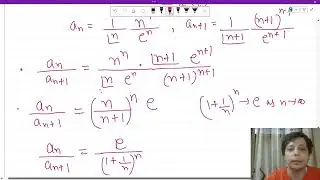 a_n = 1/⌊n n^n/e^n , a_{n+1} = 1/⌊n+1 (n+1)^{n+1}/e^{n+1}
a_n/a_{n+1} = n^n/(⌊n e^n) · ⌊n+1 e^{n+1}/(n+1)^{n+1}
a_n/a_{n+1} = (n/(n+1))^n e (1+1/n)^n → e as n→∞
a_n/a_{n+1} = e/(1+1/n)^n